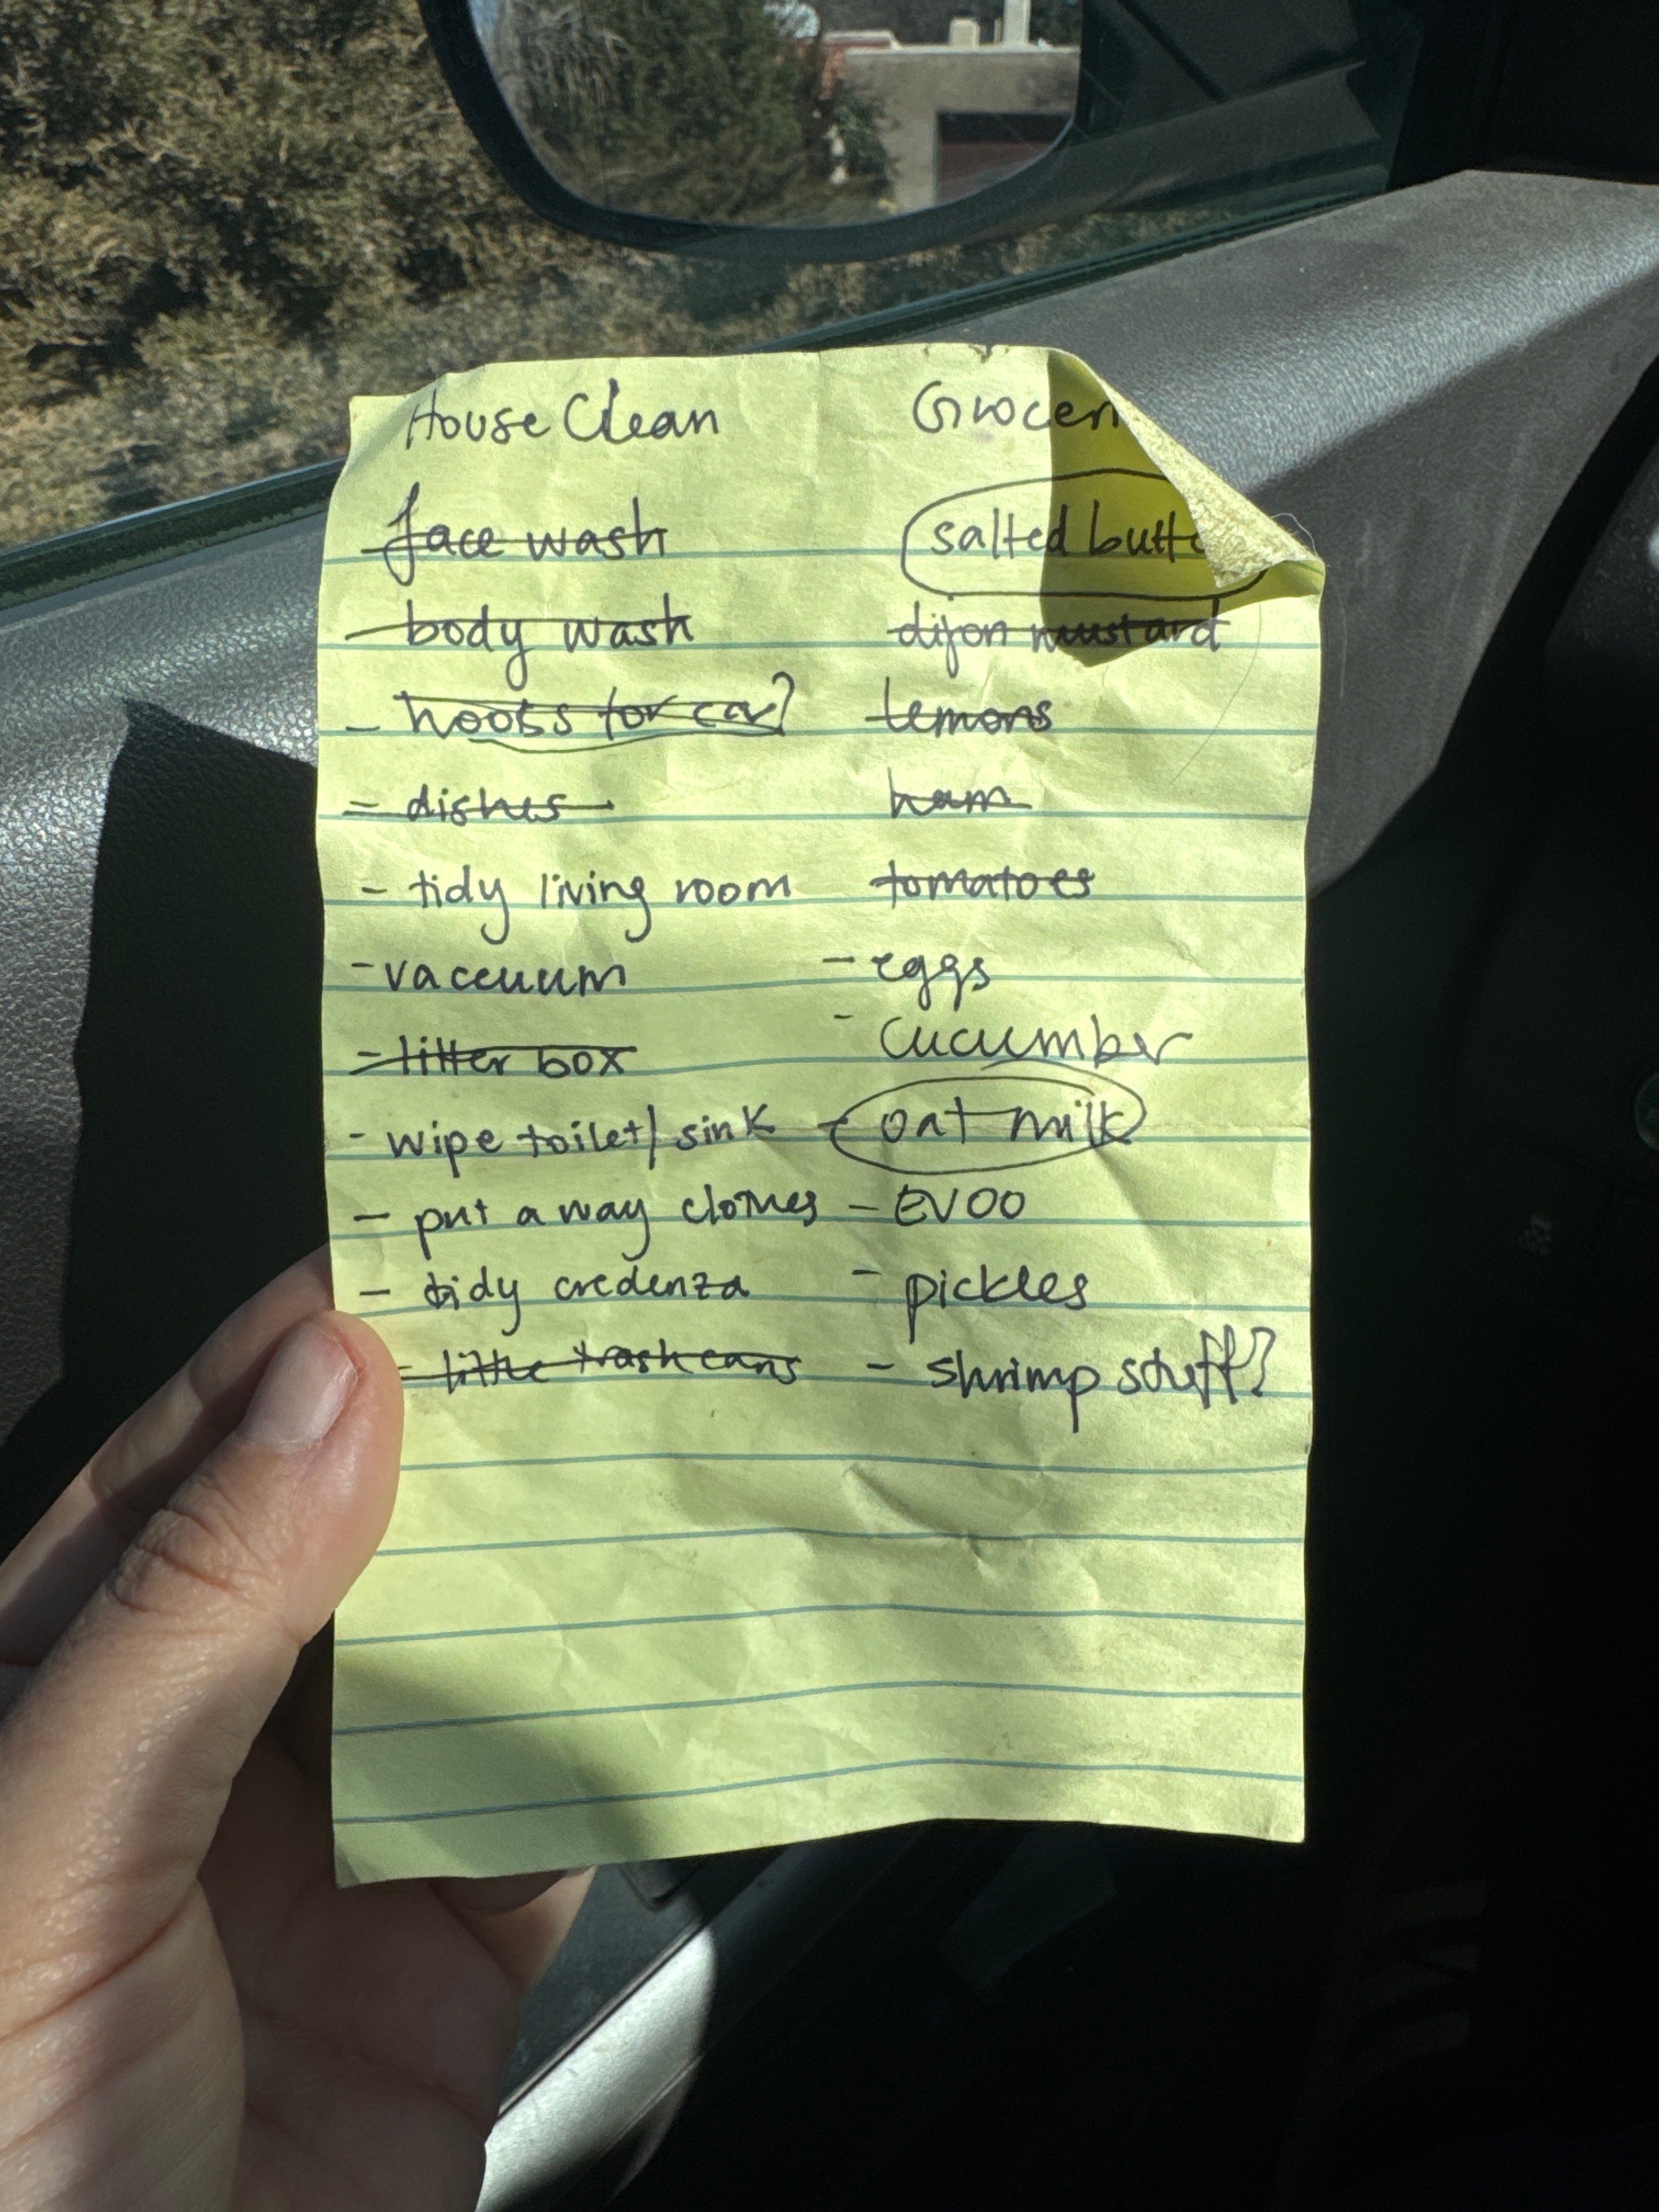 House Clean
face wash
body wash
- hooks for car?
- dishes
- tidy living room
- vaccuum
- litter box
- wipe toilet/sink
- put away clothes
- tidy credenza
- little trash cans
Grocer
salted butt
dijon mustard
lemons
ham
tomatoes
- eggs
- cucumber
- oat milk
- EVOO
- pickles
- shrimp stuff?